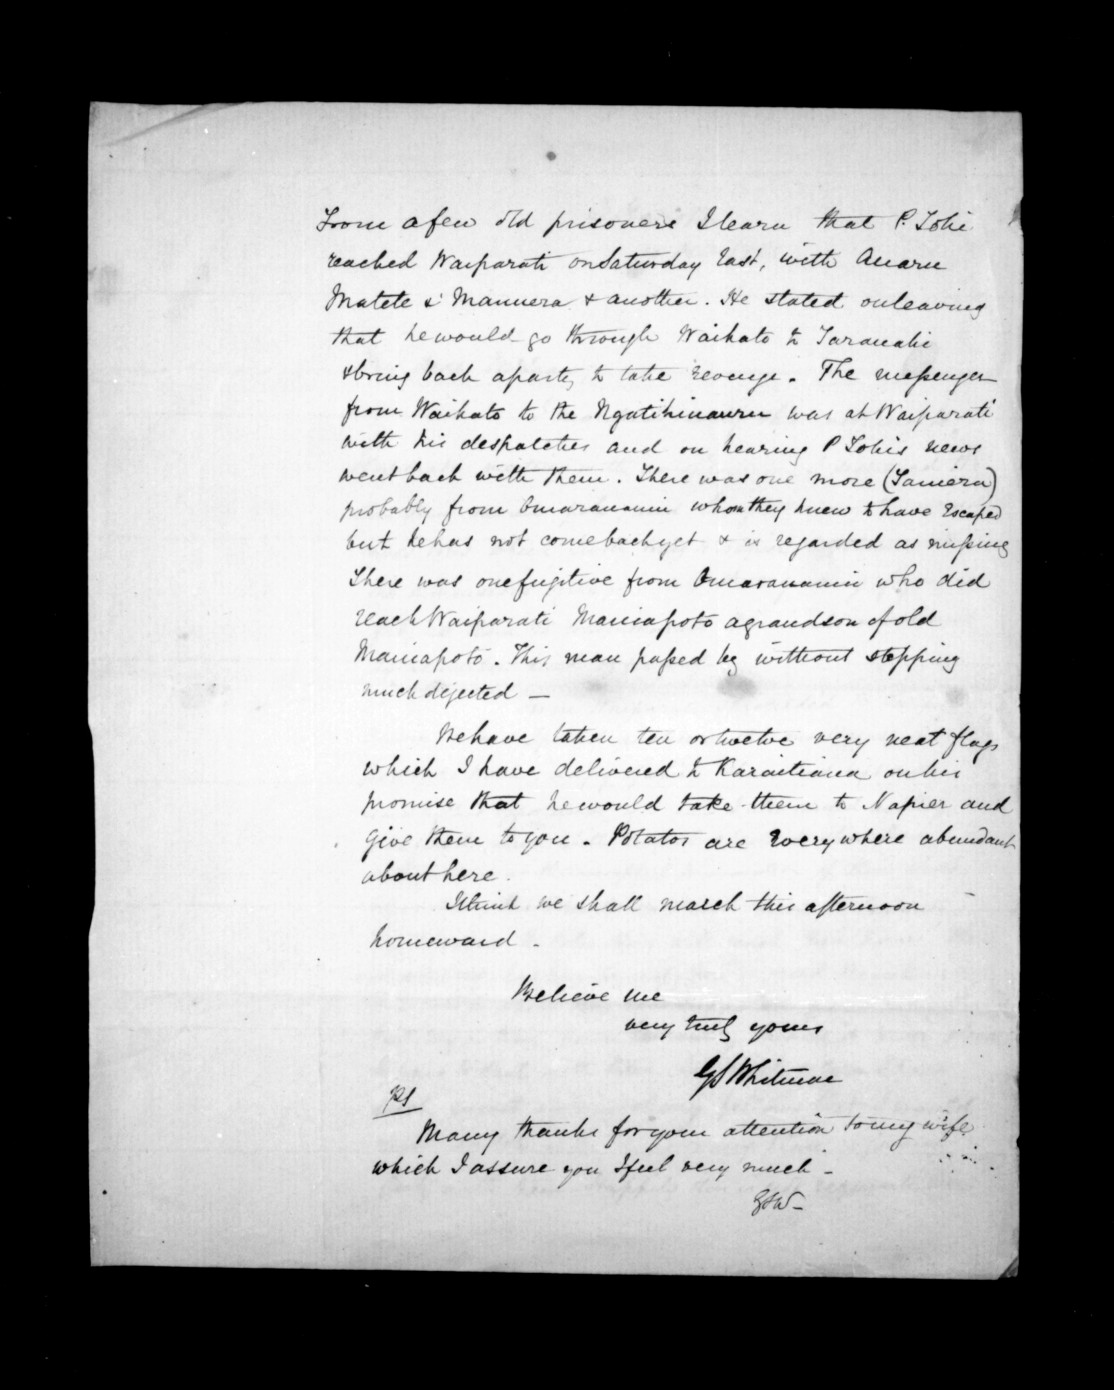 From a few old prisoners I learn that P. Tohi
reached Waiparati on Saturday last, with Anaru
Matete & Manuera & another. He stated on leaving
that he would go through Waikato to Taranaki
& bring back a party to take revenge. The messenger
from Waikato to the Ngatihinauru was at Waiparati
with his despatches and on hearing P Tohis news
went back with them. There was one more (Tamiera)
probably from Omaranamui whom they knew to have escaped
but he has not come back yet & is regarded as missing
There was one fugitive from Omaranamui who did
reach Waiparati Maniapoto a grandson of old
Maniapoto. This man passed by without stopping
much dejected —
We have taken ten or twelve very neat flags
which I have delivered to Karaitiana on his
promise that he would take them to Napier and
give them to you. Potatos are everywhere abundant
about here.
I think we shall march this afternoon
homeward.
Believe me
very truly yours
GS Whitmore
PS
Many thanks for your attention to my wife
which I assure you I feel very much -
GSW-